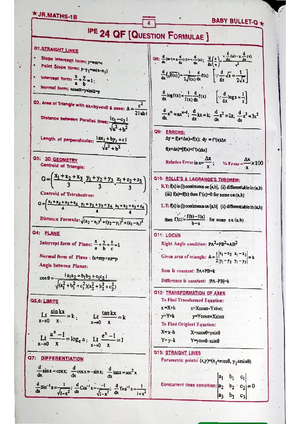 ★ JR.MATHS-1B
4
BABY BULLET-Q ★
IPE 24 QF [QUESTION FORMULAE]
Q1.STRAIGHT LINES
Slope intercept form: y=mx+c
Point Slope form: y-y₁=m(x-x₁)
Intercept form: x/a + y/b = 1
Normal form: xcosα+ysinα=p
Q2. Area of Triangle with ax+by+c=0 & axes: Δ = c²/2|ab|
Distance between Parallel lines:
Length of perpendicular: |ax₁+by₁+c|/√(a²+b²)
Q3: 3D GEOMETRY
Centroid of Triangle:
G=((x₁+x₂+x₃)/3, (y₁+y₂+y₃)/3, (z₁+z₂+z₃)/3)
Centroid of Tetrahedron:
Distance Formula: √((x₂-x₁)²+(y₂-y₁)²+(z₂-z₁)²)
Q4: PLANE
Intercept form of Plane: x/a + y/b + z/c = 1
Normal form of Plane:
Angle between Planes:
cosθ = |a₁a₂+b₁b₂+c₁c₂|/√((a₁²+b₁²+c₁²)(a₂²+b₂²+c₂²))
Q5,6: LIMITS
Lt x→0 sin kx/x = k ; Lt x→0 tan kx/x = k
Lt x→0 (a^x-1)/x = logₑa ; Lt x→0 (e^x-1)/x = 1
Q7: DIFFERENTIATION
d/dx sinx=cosx; d/dx cosx=-sinx; d/dx tanx=sec²x
d/dx Sin⁻¹x = 1/√(1-x²); d/dx Cos⁻¹x = -1/√(1-x²); d/dx Tan⁻¹x = 1/(1+x²)
Q8:
d/dx(√f(x)) = 1/(2√f(x)) d/dx f(x) [d/dx √x = 1/(2√x)]
d/dx log f(x) = 1/f(x) d/dx f(x) [d/dx log x = 1/x]
d/dx (k)=0; d/dx kx=k; d/dx x²=2x; d/dx x³=3x²
Q9: ERRORS:
Δy = f(x+Δx)-f(x); dy = f'(x)Δx
f(x+Δx)≈f(x)+f'(x)Δx
Relative Error is Δx/x; % Error= Δx/x ×100
Q10: ROLLE'S & LAGRANGE'S THEOREM:
R.T: f(x) is (i) continuous on [a,b], (ii) differentiable in (a,b)
(iii) f(a)=f(b) then f'(c)=0 for some c∈(a,b)
L.T: f(x) is (i) continuous on [a,b], (ii) differentiable in (a,b)
then f'(c) = (f(b)-f(a))/(b-a) for some c∈(a,b)
Q11: LOCUS
Right Angle condition: PA²+PB²=AB²
Given area of triangle:
Sum is constant: PA+PB=k
Difference is constant: |PA-PB|=k
Q12: TRANSFORMATION OF AXES
To Find Transformed Equation:
x=X+h x=Xcosθ-Ysinθ
y=Y+k y=Ycosθ+Xsinθ
To Find Original Equation:
X=x-h X=xcosθ+ysinθ
Y=y-k Y=ycosθ-xsinθ
Q13: STRAIGHT LINES
Parametric point:
Concurrent lines condition: |a₁ b₁ c₁; a₂ b₂ c₂; a₃ b₃ c₃|=0